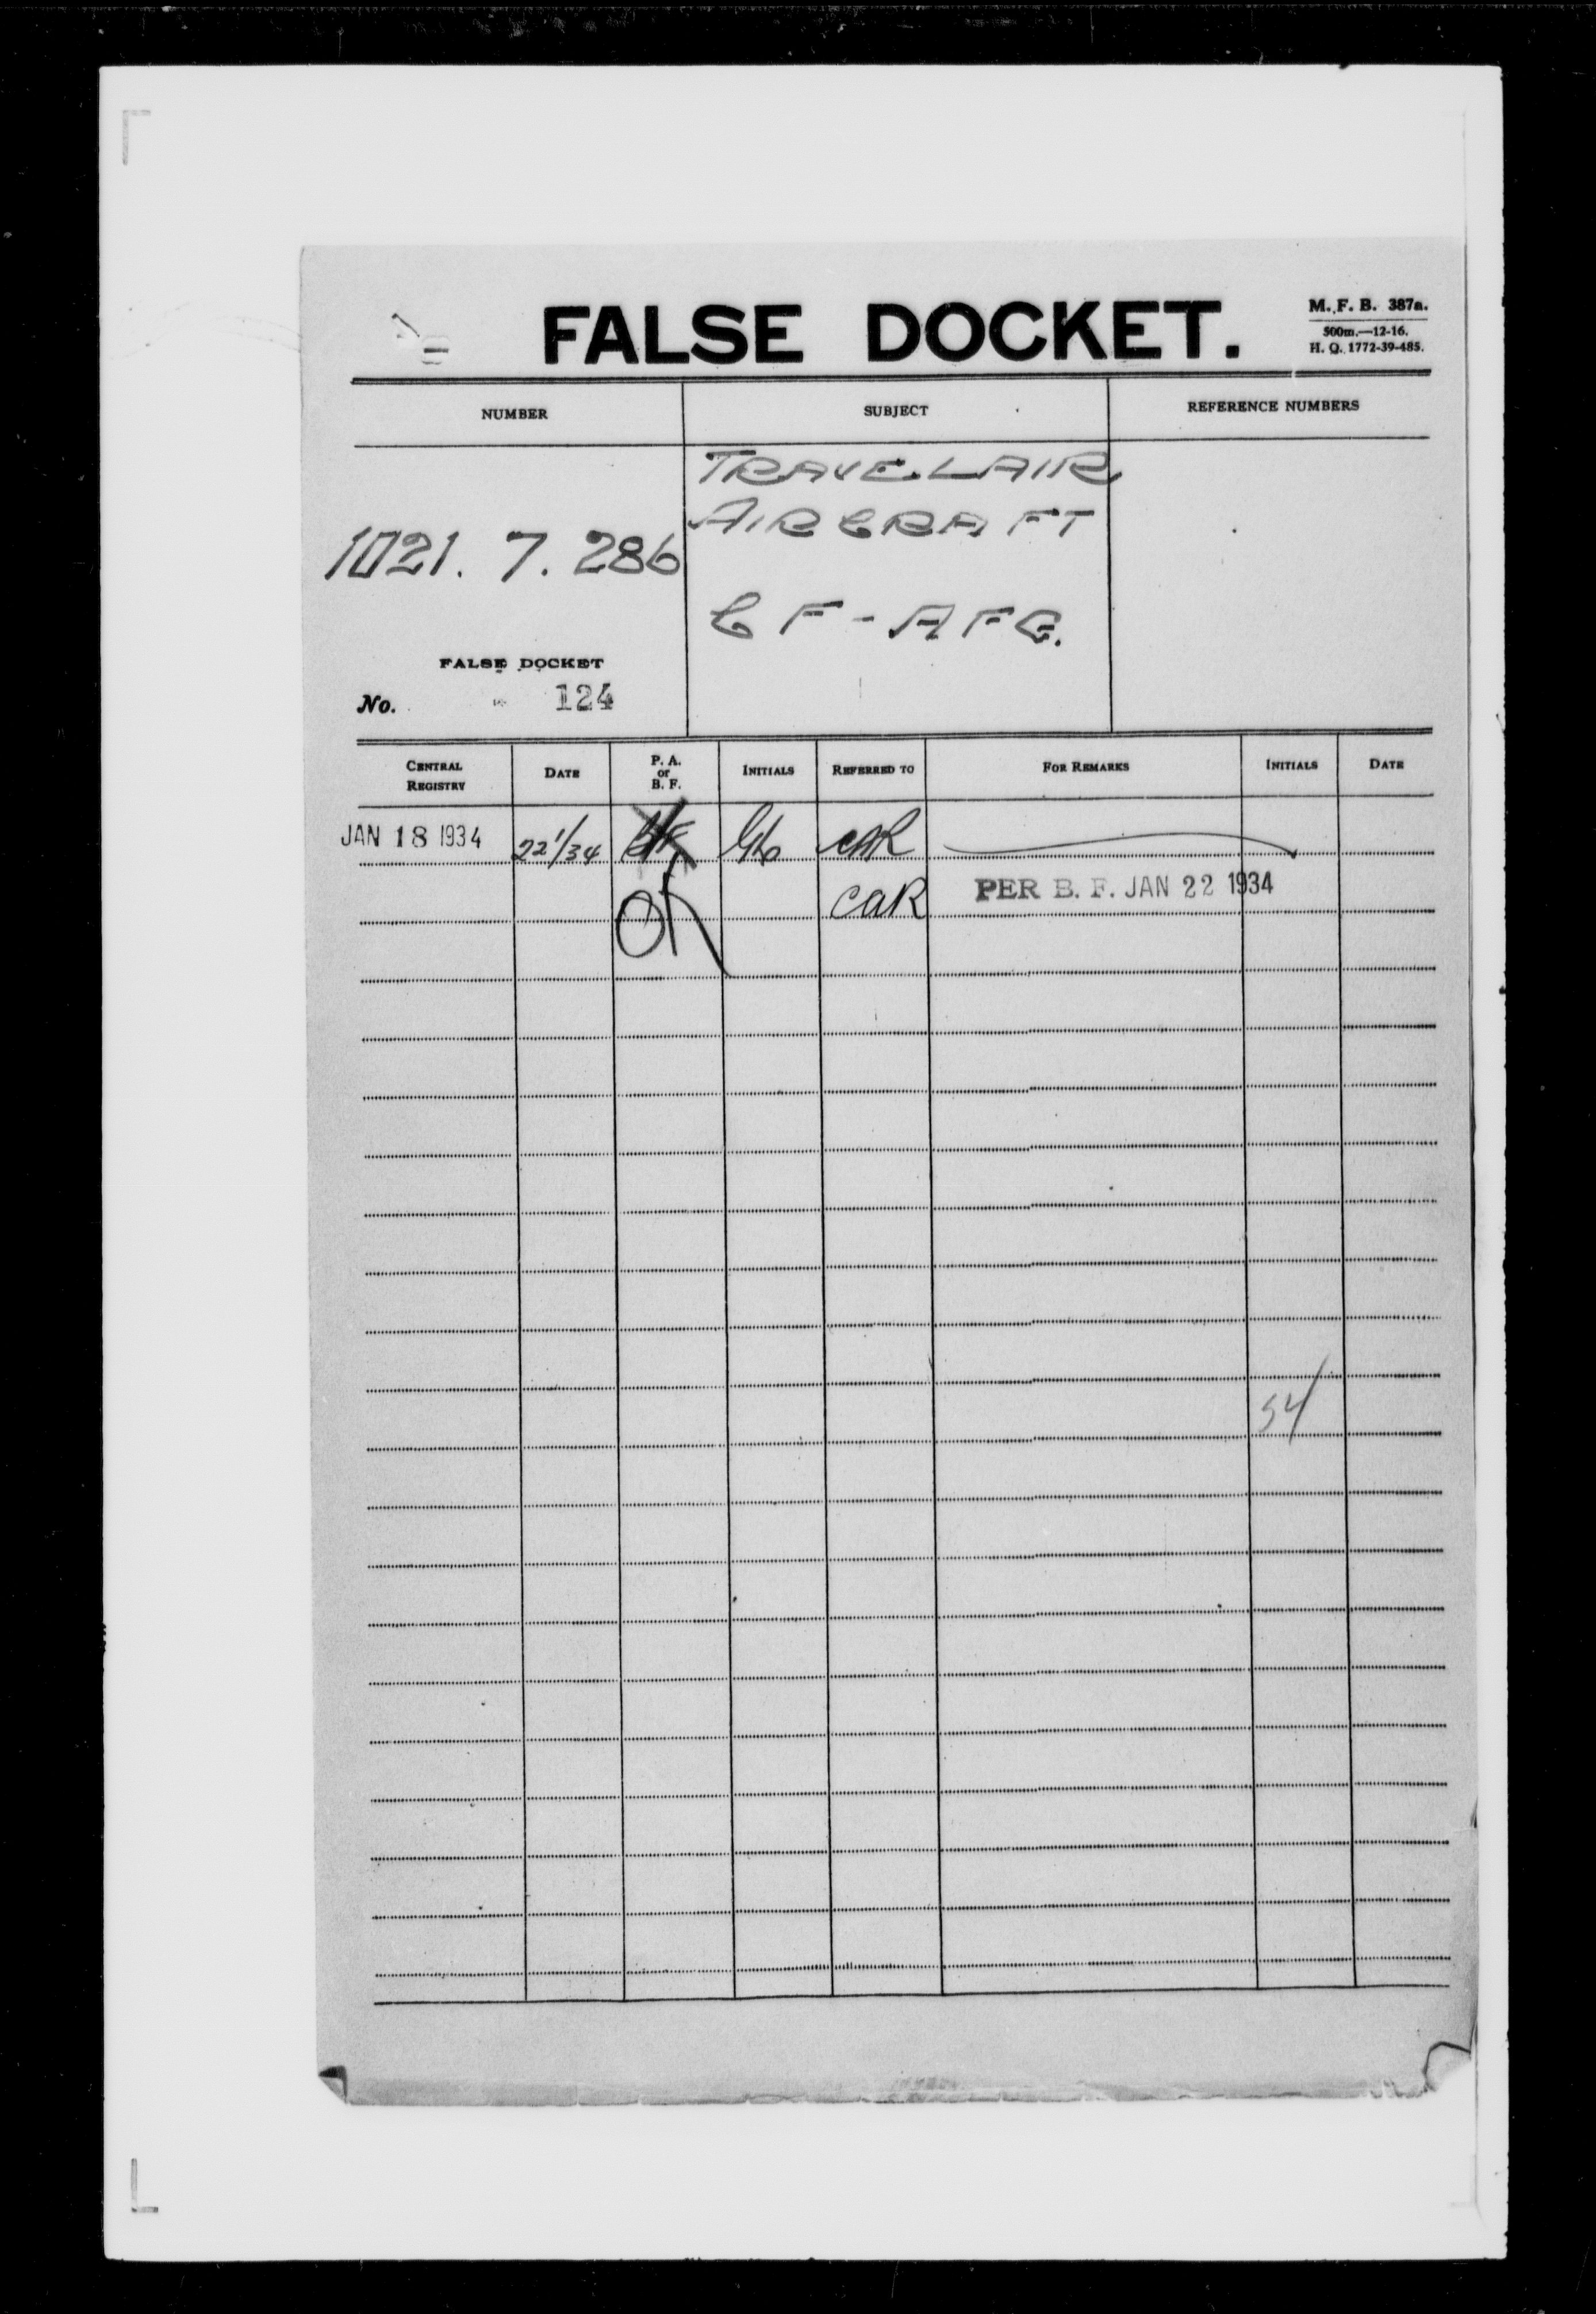 FALSE DOCKET.
M. F. B. 387a.
500m.—12-16.
H. Q. 1772-39-485.
NUMBER SUBJECT REFERENCE NUMBERS
TRAVELAIR
AIRCRAFT
1021. 7. 286
CF-AFG.
FALSE DOCKET
No. 124
CENTRAL REGISTRY DATE P. A. or B. F. INITIALS REFERRED TO FOR REMARKS INITIALS DATE
JAN 18 1934 22/1/34 CAR
CAR PER B. F. JAN 22 1934
54